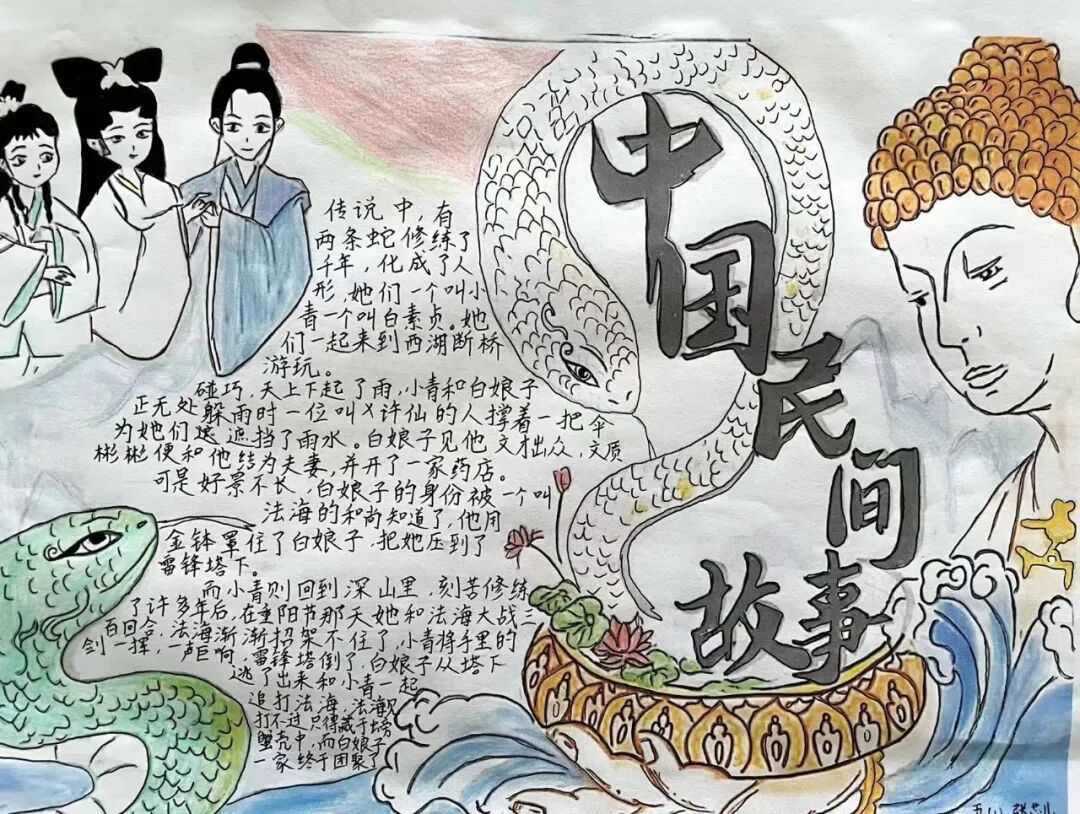 中国民间故事
传说中，有
两条蛇修练了
千年，化成了人
形，她们一个叫小
青一个叫白素贞。她
们一起来到西湖断桥
游玩。
碰巧，天上下起了雨，小青和白娘子
正无处躲雨时一位叫许仙的人撑着一把伞
为她们遮挡了雨水。白娘子见他文才出众，文质
彬彬便和他结为夫妻，并开了一家药店。
可是好景不长，白娘子的身份被一个叫
法海的和尚知道了，他用
金钵罩住了白娘子，把她压到了
雷锋塔下。
而小青则回到深山里，刻苦修练
了许多年后，在重阳节那天她和法海大战三
百回合，法海渐渐招架不住了，小青将手里的
剑一挥，一声巨响，雷锋塔倒了，白娘子从塔下
逃了出来和小青一起
追打法海，法海见
打不过只得藏于螃
蟹壳中，而白娘子
一家终于团聚了！